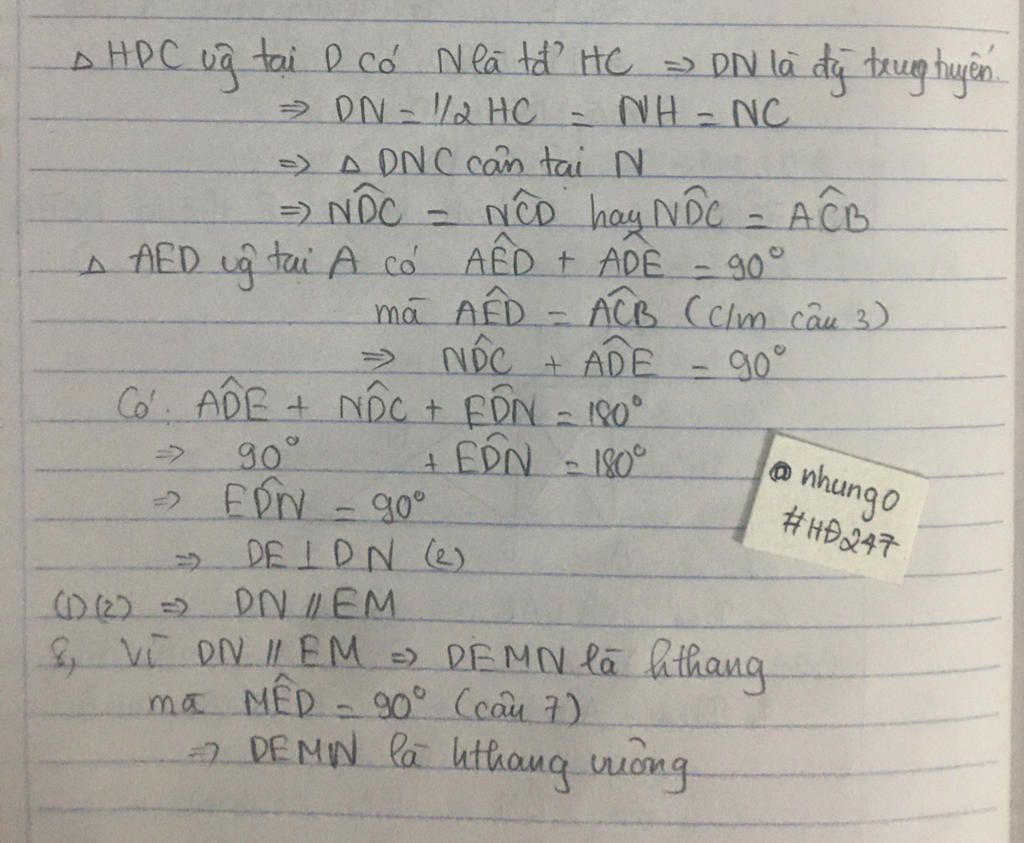 △ HDC vg̃ tại D có N là tđ' HC => DN là đg̃ trung tuyến.
=> DN = 1/2 HC = NH = NC
=> △ DNC cân tại N
=> ND̂C = NĈD hay ND̂C = AĈB
△ AED vg̃ tại A có AÊD + AD̂E = 90°
mà AÊD = AĈB (c/m câu 3)
=> ND̂C + AD̂E = 90°
Có: AD̂E + ND̂C + ED̂N = 180°
=> 90° + ED̂N = 180°
=> ED̂N = 90°
=> DE ⊥ DN (2)
(1)(2) => DN // EM
8, Vì DN // EM => DEMN là hthang
mà MÊD = 90° (câu 7)
=> DEMN là hthang vuông
@nhung0
#HĐ247